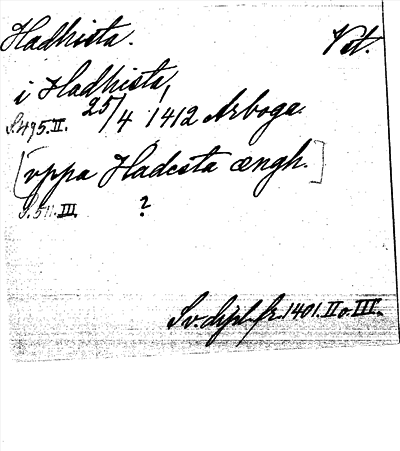 Hadhista. Vst.
i Hadhista,
S.495.II. 25/4 1412 Arboga.
[vppa Hadesta ængh.]
S.511.III. ?
Sv. dipl. fr. 1401. II o. III.